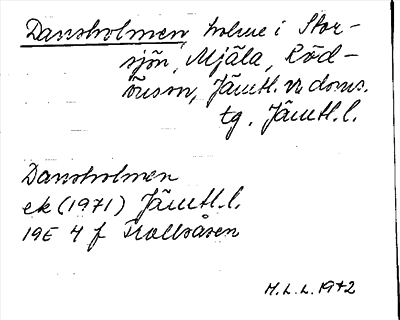 Dansholmen, holme i Stor-
sjön, Mjäla, Röd-
önson, Jämtl. v. doms.
tg. Jämtl. l.
Dansholmen
ek (1971) Jämtl. l.
19E 4 f Trollsåsen
H.L.L. 1942